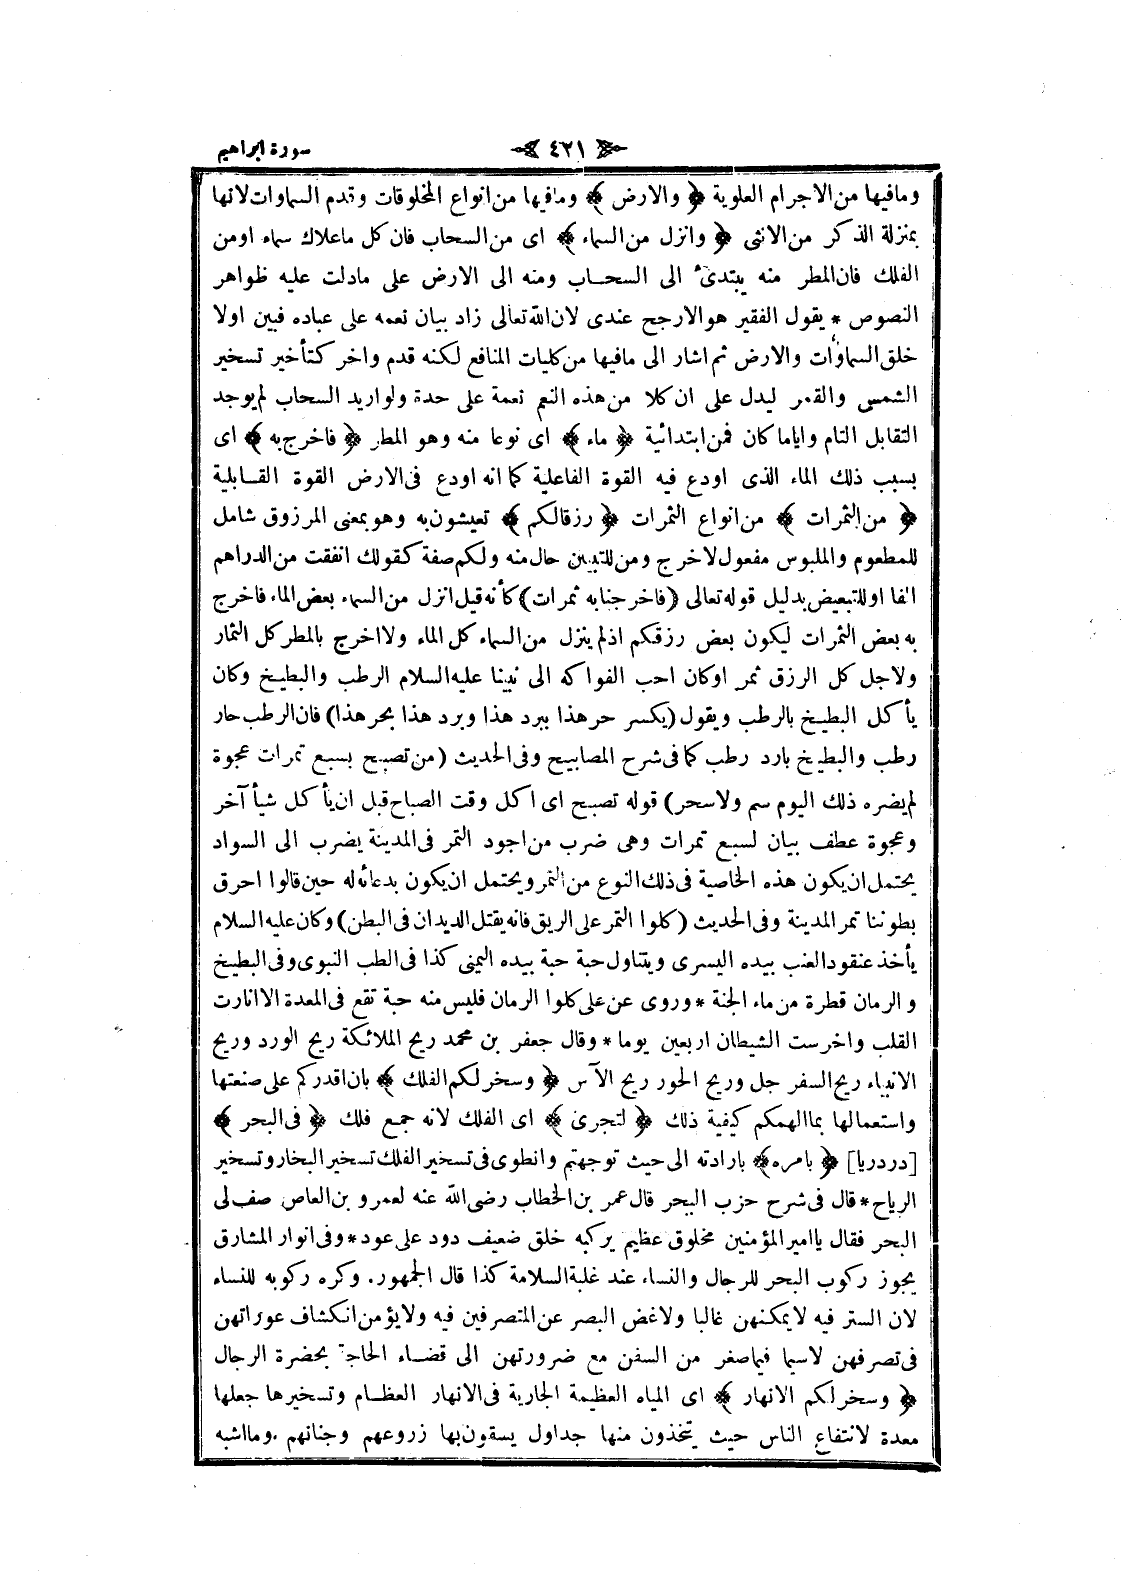 سورة ابراهيم ﴿ ٤٢١ ﴾
ومافيها من الاجرام العلوية ﴿ والارض ﴾ ومافيها من انواع المخلوقات وقدم السماوات لانها
بمنزلة الذكر من الانثى ﴿ وانزل من السماء ﴾ اى من السحاب فان كل ماعلاك سماء اومن
الفلك فان المطر منه يبتدئ الى السحاب ومنه الى الارض على مادلت عليه ظواهر
النصوص * يقول الفقير هو الارجح عندى لان الله تعالى زاد بيان نعمه على عباده فبين اولا
خلق السماوات والارض ثم اشار الى مافيها من كليات المنافع لكنه قدم واخر كتأخير تسخير
الشمس والقمر ليدل على ان كلا من هذه النعم نعمة على حدة ولو اريد السحاب لم يوجد
التقابل التام واياما كان فمن ابتدائية ﴿ ماء ﴾ اى نوعا منه وهو المطر ﴿ فاخرج به ﴾ اى
بسبب ذلك الماء الذى اودع فيه القوة الفاعلية كما انه اودع فى الارض القوة القابلية
﴿ من الثمرات ﴾ من انواع الثمرات ﴿ رزقالكم ﴾ تعيشون به وهو بمعنى المرزوق شامل
للمطعوم والملبوس مفعول لاخرج ومن للتبيين حال منه ولكم صفة كقولك انفقت من الدراهم
الفا او للتبعيض بدليل قوله تعالى (فاخرجنابه ثمرات) كأنه قيل انزل من السماء بعض الماء فاخرج
به بعض الثمرات ليكون بعض رزقكم اذلم ينزل من السماء كل الماء ولااخرج بالمطر كل الثمار
ولاجل كل الرزق ثمر اوكان احب الفواكه الى نبينا عليه السلام الرطب والبطيخ وكان
يأكل البطيخ بالرطب ويقول (يكسر حر هذا ببرد هذا وبرد هذا بحر هذا) فان الرطب حار
رطب والبطيخ بارد رطب كما فى شرح المصابيح وفى الحديث (من تصبح بسبع تمرات عجوة
لم يضره ذلك اليوم سم ولاسحر) قوله تصبح اى اكل وقت الصباح قبل ان يأكل شيأ آخر
وعجوة عطف بيان لسبع تمرات وهى ضرب من اجود التمر فى المدينة يضرب الى السواد
يحتمل ان يكون هذه الخاصية فى ذلك النوع من التمر ويحتمل ان يكون بدعائه له حين قالوا احرق
بطوننا تمر المدينة وفى الحديث (كلوا التمر على الريق فانه يقتل الديدان فى البطن) وكان عليه السلام
يأخذ عنقود العنب بيده اليسرى ويتناول حبة حبة بيده اليمنى كذا فى الطب النبوى وفى البطيخ
والرمان قطرة من ماء الجنة * وروى عن على كلوا الرمان فليس منه حبة تقع فى المعدة الاانارت
القلب واخرست الشيطان اربعين يوما * وقال جعفر بن محمد ريح الملائكة ريح الورد وريح
الانبياء ريح السفر جل وريح الحور ريح الآس ﴿ وسخر لكم الفلك ﴾ بان اقدركم على صنعتها
واستعمالها بما الهمكم كيفية ذلك ﴿ لتجرى ﴾ اى الفلك لانه جمع فلك ﴿ فى البحر ﴾
[دردريا] ﴿ بامره ﴾ بارادته الى حيث توجهتم وانطوى فى تسخير الفلك تسخير البحار وتسخير
الرياح * قال فى شرح حزب البحر قال عمر بن الخطاب رضى الله عنه لعمرو بن العاص صف لى
البحر فقال ياامير المؤمنين مخلوق عظيم يركبه خلق ضعيف دود على عود * وفى انوار المشارق
يجوز ركوب البحر للرجال والنساء عند غلبة السلامة كذا قال الجمهور. وكره ركوبه للنساء
لان الستر فيه لايمكنهن غالبا ولاغض البصر عن المتصرفين فيه ولايؤمن انكشاف عوراتهن
فى تصرفهن لاسيما فيما صغر من السفن مع ضرورتهن الى قضاء الحاجة بحضرة الرجال
﴿ وسخر لكم الانهار ﴾ اى المياه العظيمة الجارية فى الانهار العظام وتسخيرها جعلها
معدة لانتفاع الناس حيث يتخذون منها جداول يسقون بها زروعهم وجنانهم . ومااشبه